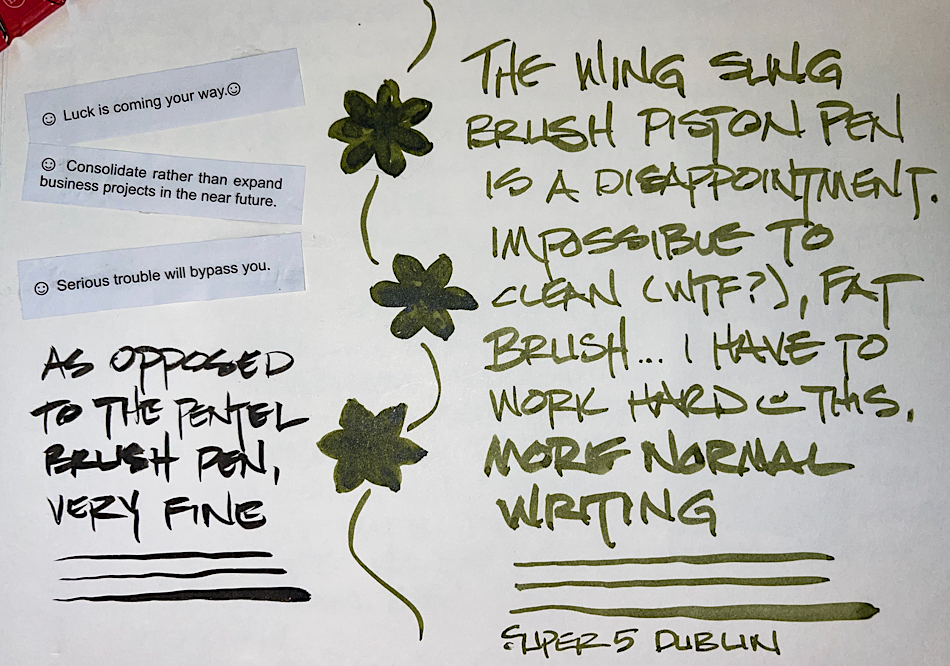 ☺ Luck is coming your way.☺
☺ Consolidate rather than expand
business projects in the near future.
☺ Serious trouble will bypass you.
AS OPPOSED
TO THE PENTEL
BRUSH PEN,
VERY FINE
THE WING SUNG
BRUSH PISTON PEN
IS A DISAPPOINTMENT.
IMPOSSIBLE TO
CLEAN (WTF?), FAT
BRUSH... I HAVE TO
WORK HARD @ THIS.
MORE NORMAL
WRITING
SUPER 5 DUBLIN